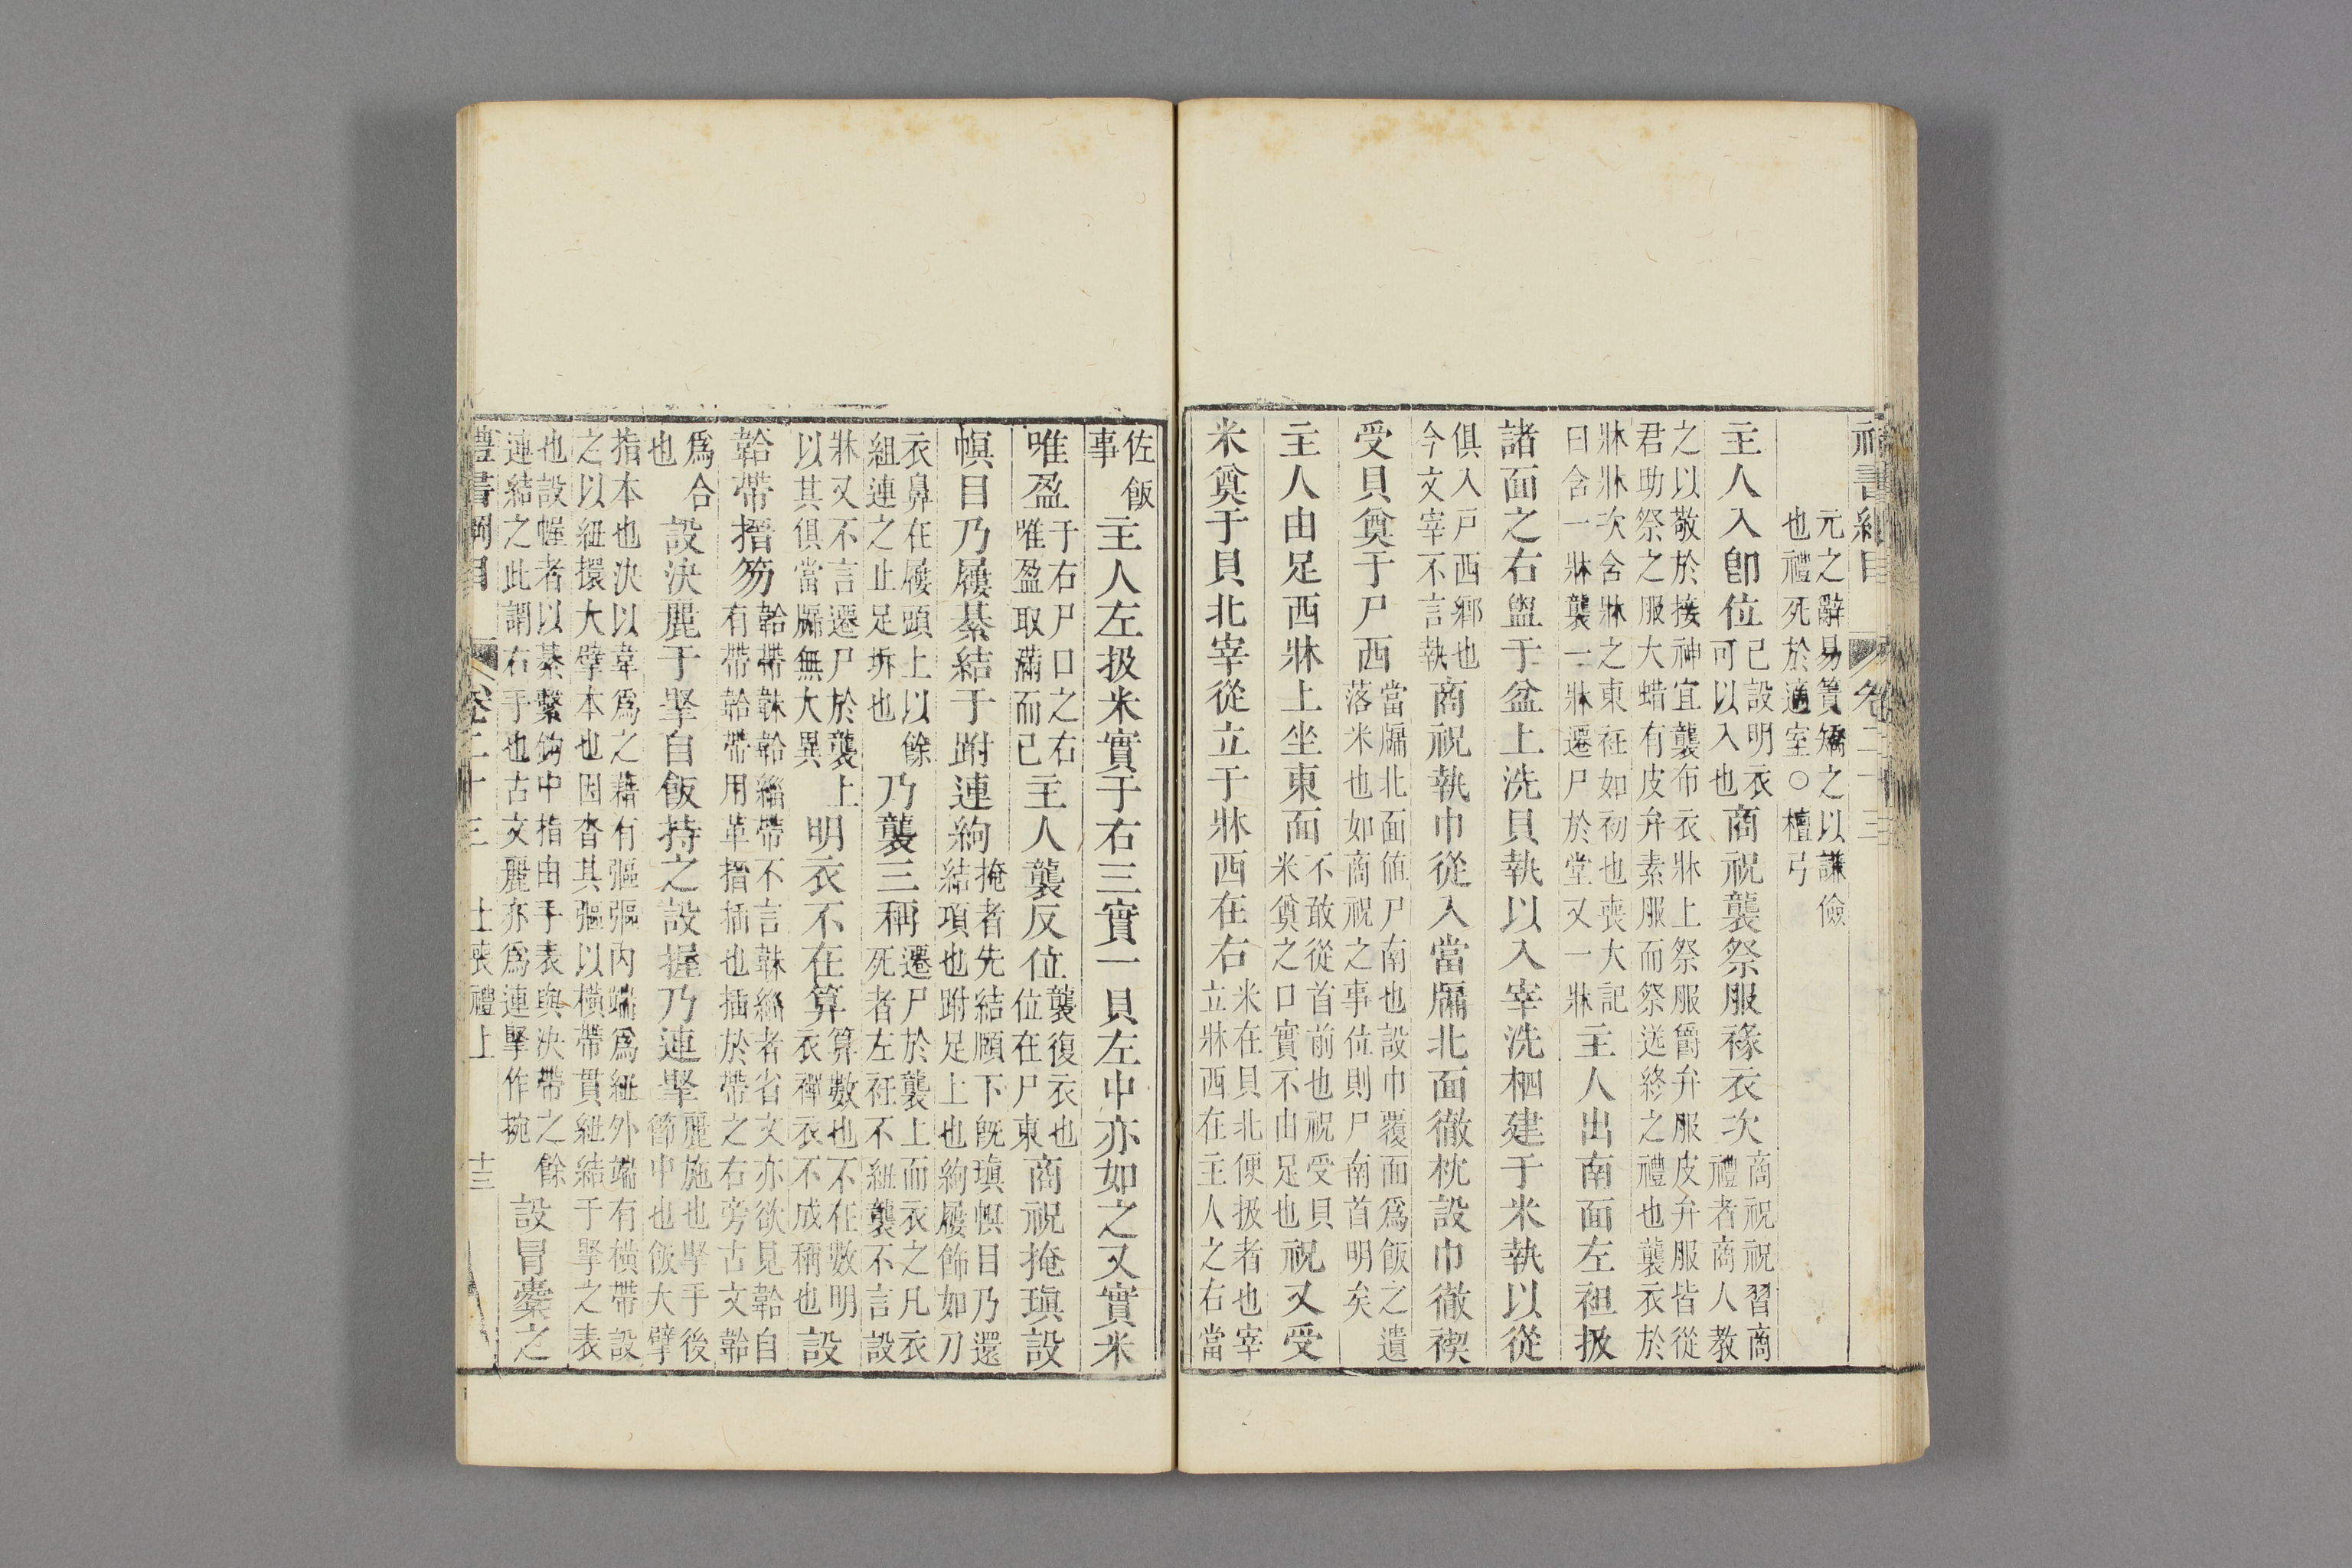 禮書綱目 卷二十三
元之辭易簀矯之以謙儉
也禮死於適室○檀弓
主人入卽位已設明衣可以入也商祝襲祭服褖衣次商祝祝習商禮者商人教
之以敬於接神宜襲布衣牀上祭服爵弁服皮弁服皆從
君助祭之服大蜡有皮弁素服而祭送終之禮也襲衣於
牀牀次含牀之東衽如初也喪大記曰含一牀襲一牀遷尸於堂又一牀主人出南面左袒扱
諸面之右盥于盆上洗貝執以入宰洗柶建于米執以從
俱入戸西鄉也今文宰不言執商祝執巾從入當牖北面徹枕設巾徹楔
受貝奠于尸西當牖北面值尸南也設巾覆面爲飯之遺落米也如商祝之事位則尸南首明矣
主人由足西牀上坐東面不敢從首前也祝受貝米奠之口實不由足也祝又受
米奠于貝北宰從立于牀西在右米在貝北便扱者也宰立牀西在主人之右當
佐飯事主人左扱米實于右三實一貝左中亦如之又實米
唯盈于右尸口之右唯盈取滿而已主人襲反位襲復衣也位在尸東商祝掩瑱設
幎目乃屨綦結于跗連絇掩者先結頤下旣瑱幎目乃還結項也跗足上也絇屨飾如刀
衣鼻在屨頭上以餘組連之止足坼也乃襲三稱遷尸於襲上而衣之凡衣死者左衽不紐襲不言設
牀又不言遷尸於襲上以其俱當牖無大異明衣不在算算數也不在數明衣襌衣不成稱也設
韐帶搢笏韐帶韎韐緇帶不言韎緇者省文亦欲見韐自有帶韐帶用革搢插也插於帶之右旁古文韐
爲合也設決麗于掔自飯持之設握乃連掔麗施也掔手後節中也飯大擘
指本也決以韋爲之藉有彄彄內端爲紐外端有橫帶設
之以紐擐大擘本也因沓其彄以橫帶貫紐結于掔之表
也設握者以綦繫鉤中指由手表與決帶之餘連結之此謂右手也古文麗亦爲連掔作捥設冒櫜之
禮書綱目 卷二十三 士喪禮上 十三